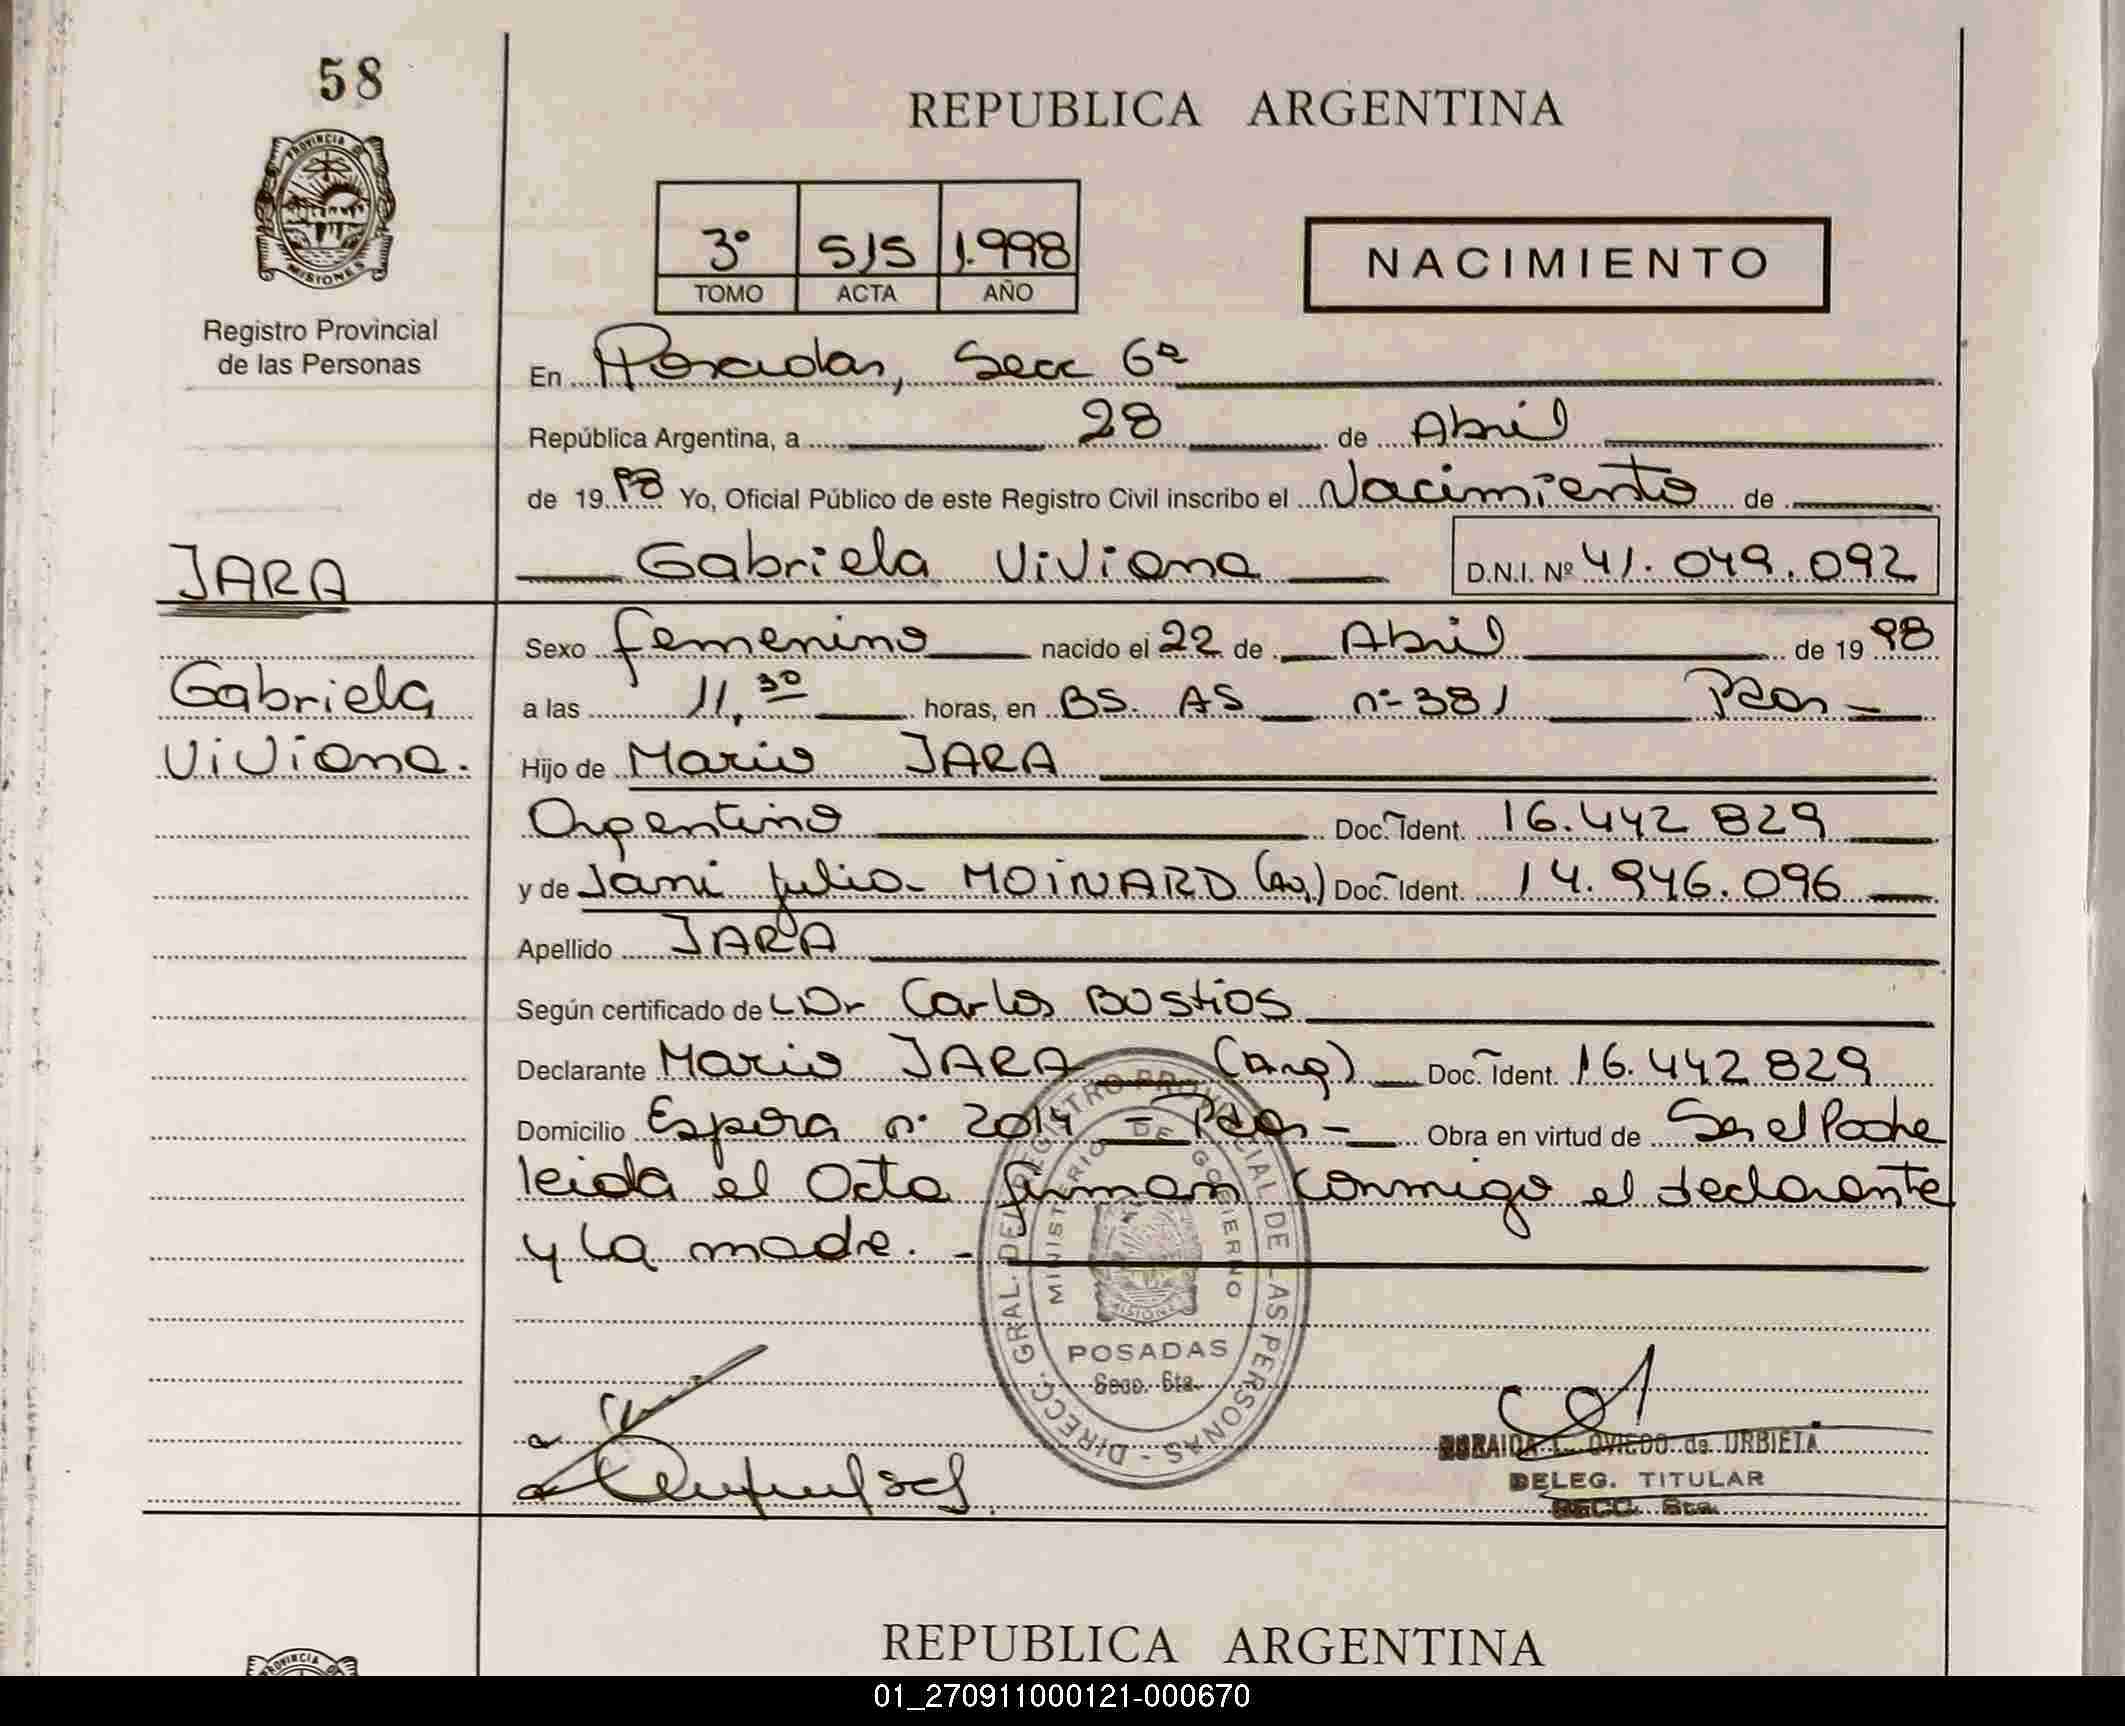 58
PROVINCIA DE
MISIONES
Registro Provincial
de las Personas
REPUBLICA ARGENTINA
3° 515 1.998
TOMO ACTA AÑO
NACIMIENTO
En Posadas, Secc 6ª
República Argentina, a 28 de Abril
de 1998 Yo, Oficial Público de este Registro Civil inscribo el Nacimiento de
JARA
Gabriela Viviana D.N.I. Nº 41.049.092
Sexo femenino nacido el 22 de Abril de 1998
Gabriela
a las 11,30 horas, en BS. AS n° 381 Pdas -
Viviana.
Hijo de Mario JARA
Argentino Doc. Ident. 16.442 829
y de Jani Julia MOINARD (Arg) Doc. Ident. 14.946.096
Apellido JARA
Según certificado de Dr Carlos Bustios
Declarante Mario JARA (Arg) Doc. Ident. 16.442 829
Domicilio Espora n° 2014 - Pdas - Obra en virtud de Ser el Padre
leida el Acta firman conmigo el declarante
y la madre. -
DIRECC. GRAL. DEL REGISTRO PROVINCIAL DE LAS PERSONAS -
MINISTERIO DE GOBIERNO
MISIONES
POSADAS
Secc. 6ta.
OVIEDO de URBIETA
DELEG. TITULAR
SECC. 6ta.
REPUBLICA ARGENTINA
PROVINCIA DE
01_270911000121-000670